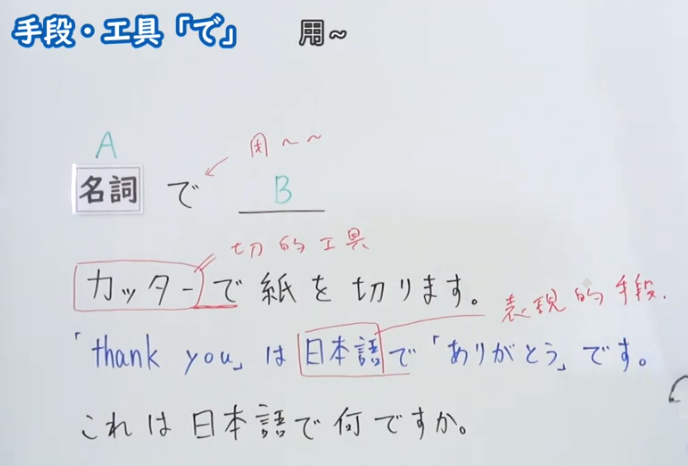 手段・工具「で」 用~
A 用~~
名詞 で B
切的工具
カッターで紙を切ります。
表現的手段.
「thank you」は日本語で「ありがとう」です。
これは日本語で何ですか。